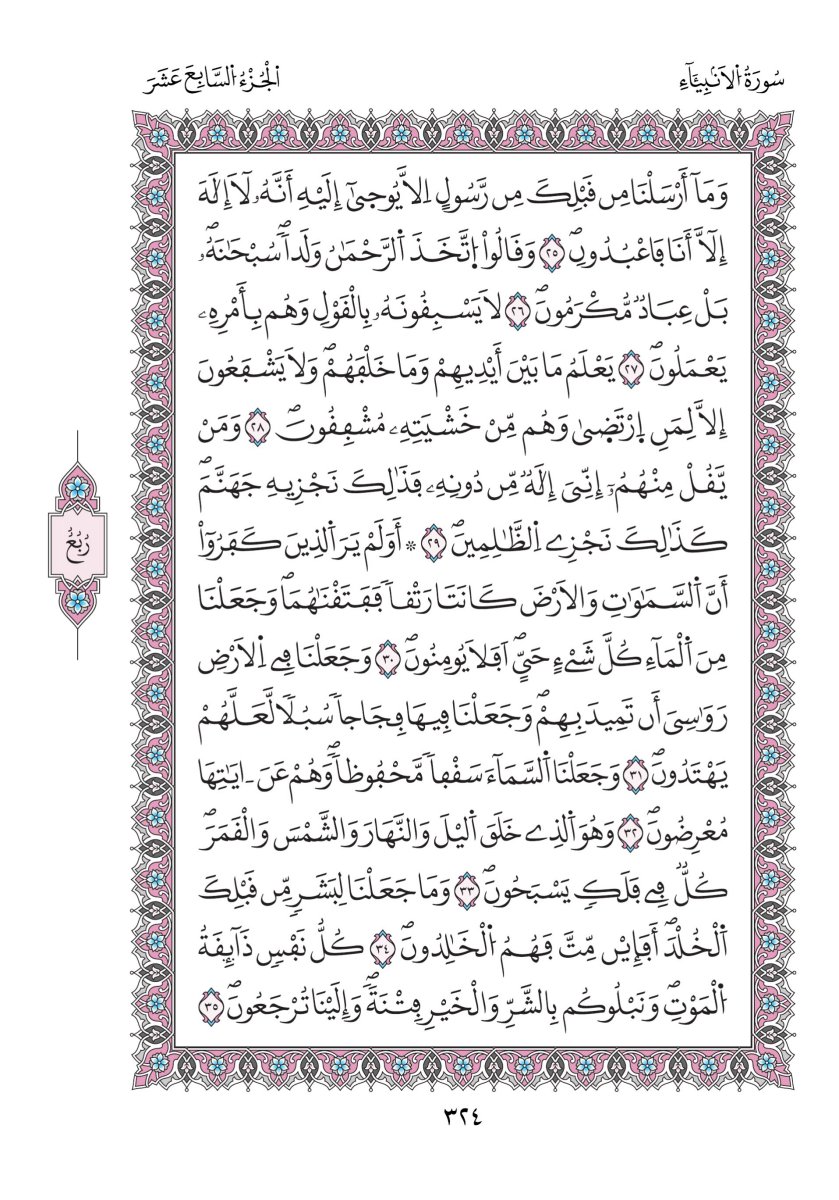 سُورَةُ اُلَانۢبِيَآءِ
اَلْجُزْءُ اُلسَّابِعَ عَشَرَ
وَمَآ أَرْسَلْنَا مِن قَبْلِكَ مِن رَّسُولٍ اِلَّا يُوحَىٰٓ إِلَيْهِ أَنَّهُۥ لَآ إِلَٰهَ
إِلَّآ أَنَا فَاعْبُدُونِۖ ٢٥ وَقَالُواْ اُ۪تَّخَذَ اَ۬لرَّحْمَٰنُ وَلَداٗۖ سُبْحَٰنَهُۥۖ
بَلْ عِبَادٞ مُّكْرَمُونَۖ ٢٦ لَا يَسْبِقُونَهُۥ بِالْقَوْلِ وَهُم بِأَمْرِهِۦ
يَعْمَلُونَۖ ٢٧ يَعْلَمُ مَا بَيْنَ أَيْدِيهِمْ وَمَا خَلْفَهُمْۖ وَلَا يَشْفَعُونَ
إِلَّا لِمَنِ اِ۪رْتَضَىٰ وَهُم مِّنْ خَشْيَتِهِۦ مُشْفِقُونَۖ ٢٨ وَمَنْ
يَّقُلْ مِنْهُمُۥٓ إِنِّيَ إِلَٰهٞ مِّن دُونِهِۦ فَذَٰلِكَ نَجْزِيهِ جَهَنَّمَۖ
كَذَٰلِكَ نَجْزِے اِ۬لظَّٰلِمِينَۖ ٢٩ ۞ أَوَلَمْ يَرَ اَ۬لذِينَ كَفَرُوٓاْ
أَنَّ اَ۬لسَّمَٰوَٰتِ وَالَارْضَ كَانَتَا رَتْقاٗ فَفَتَقْنَٰهُمَاۖ وَجَعَلْنَا
مِنَ اَ۬لْمَآءِ كُلَّ شَےْءٍ حَيٍّۖ اَفَلَا يُومِنُونَۖ ٣٠ وَجَعَلْنَا فِے اِ۬لَارْضِ
رَوَٰسِيَ أَن تَمِيدَ بِهِمْۖ وَجَعَلْنَا فِيهَا فِجَاجاٗ سُبُلاٗ لَّعَلَّهُمْ
يَهْتَدُونَۖ ٣١ وَجَعَلْنَا اَ۬لسَّمَآءَ سَقْفاٗ مَّحْفُوظاٗۖ وَهُمْ عَنَ ـ ايَٰتِهَا
مُعْرِضُونَۖ ٣٢ وَهُوَ اَ۬لذِے خَلَقَ اَ۬ليْلَ وَالنَّهَارَ وَالشَّمْسَ وَالْقَمَرَۖ
كُلّٞ فِے فَلَكٖ يَسْبَحُونَۖ ٣٣ وَمَا جَعَلْنَا لِبَشَرٖ مِّن قَبْلِكَ
اَ۬لْخُلْدَۖ أَفَإِي۟ن مِّتَّ فَهُمُ اُ۬لْخَٰلِدُونَۖ ٣٤ كُلُّ نَفْسٖ ذَآئِقَةُ
اُ۬لْمَوْتِۖ وَنَبْلُوكُم بِالشَّرِّ وَالْخَيْرِ فِتْنَةٗۖ وَإِلَيْنَا تُرْجَعُونَۖ ٣٥
رُبُعُ
٣٢٤